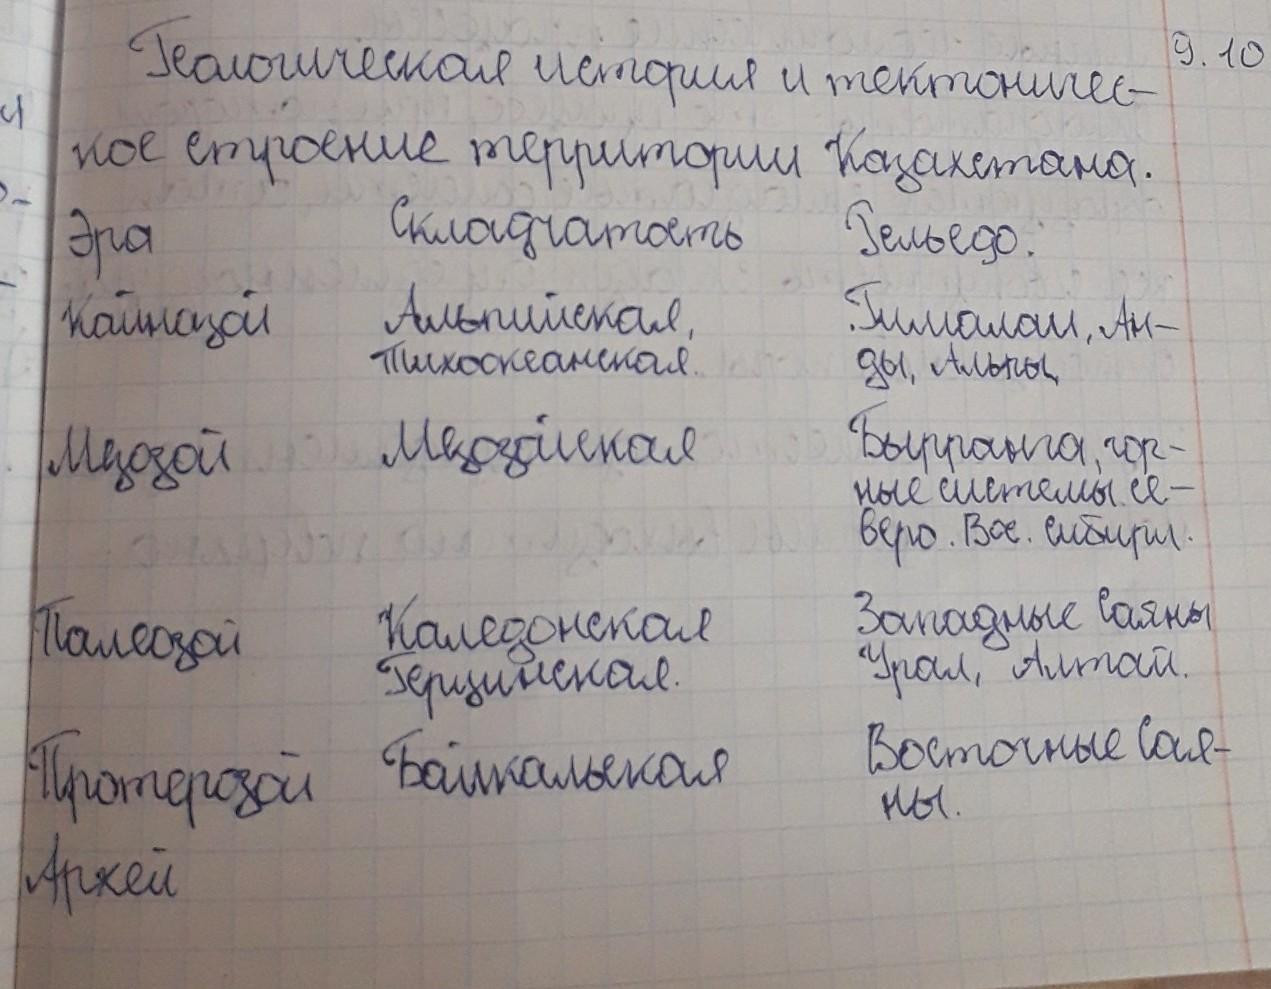 9.10
Геологическая история и тектоничес-
кое строение территории Казахстана.
Эра Складчатость Гельедо.
Кайнозой Альпийская, Гималаи, Ан-
Тихоокеанская. ды, Альпы
Мезозой Мезозойская Бырранга, гор-
ные системы се-
веро. Вос. Сибири.
Палеозой Каледонская Западные Саяны
Герцинская. Урал, Алтай.
Протерозой Байкальская Восточные Сая-
ны.
Архей